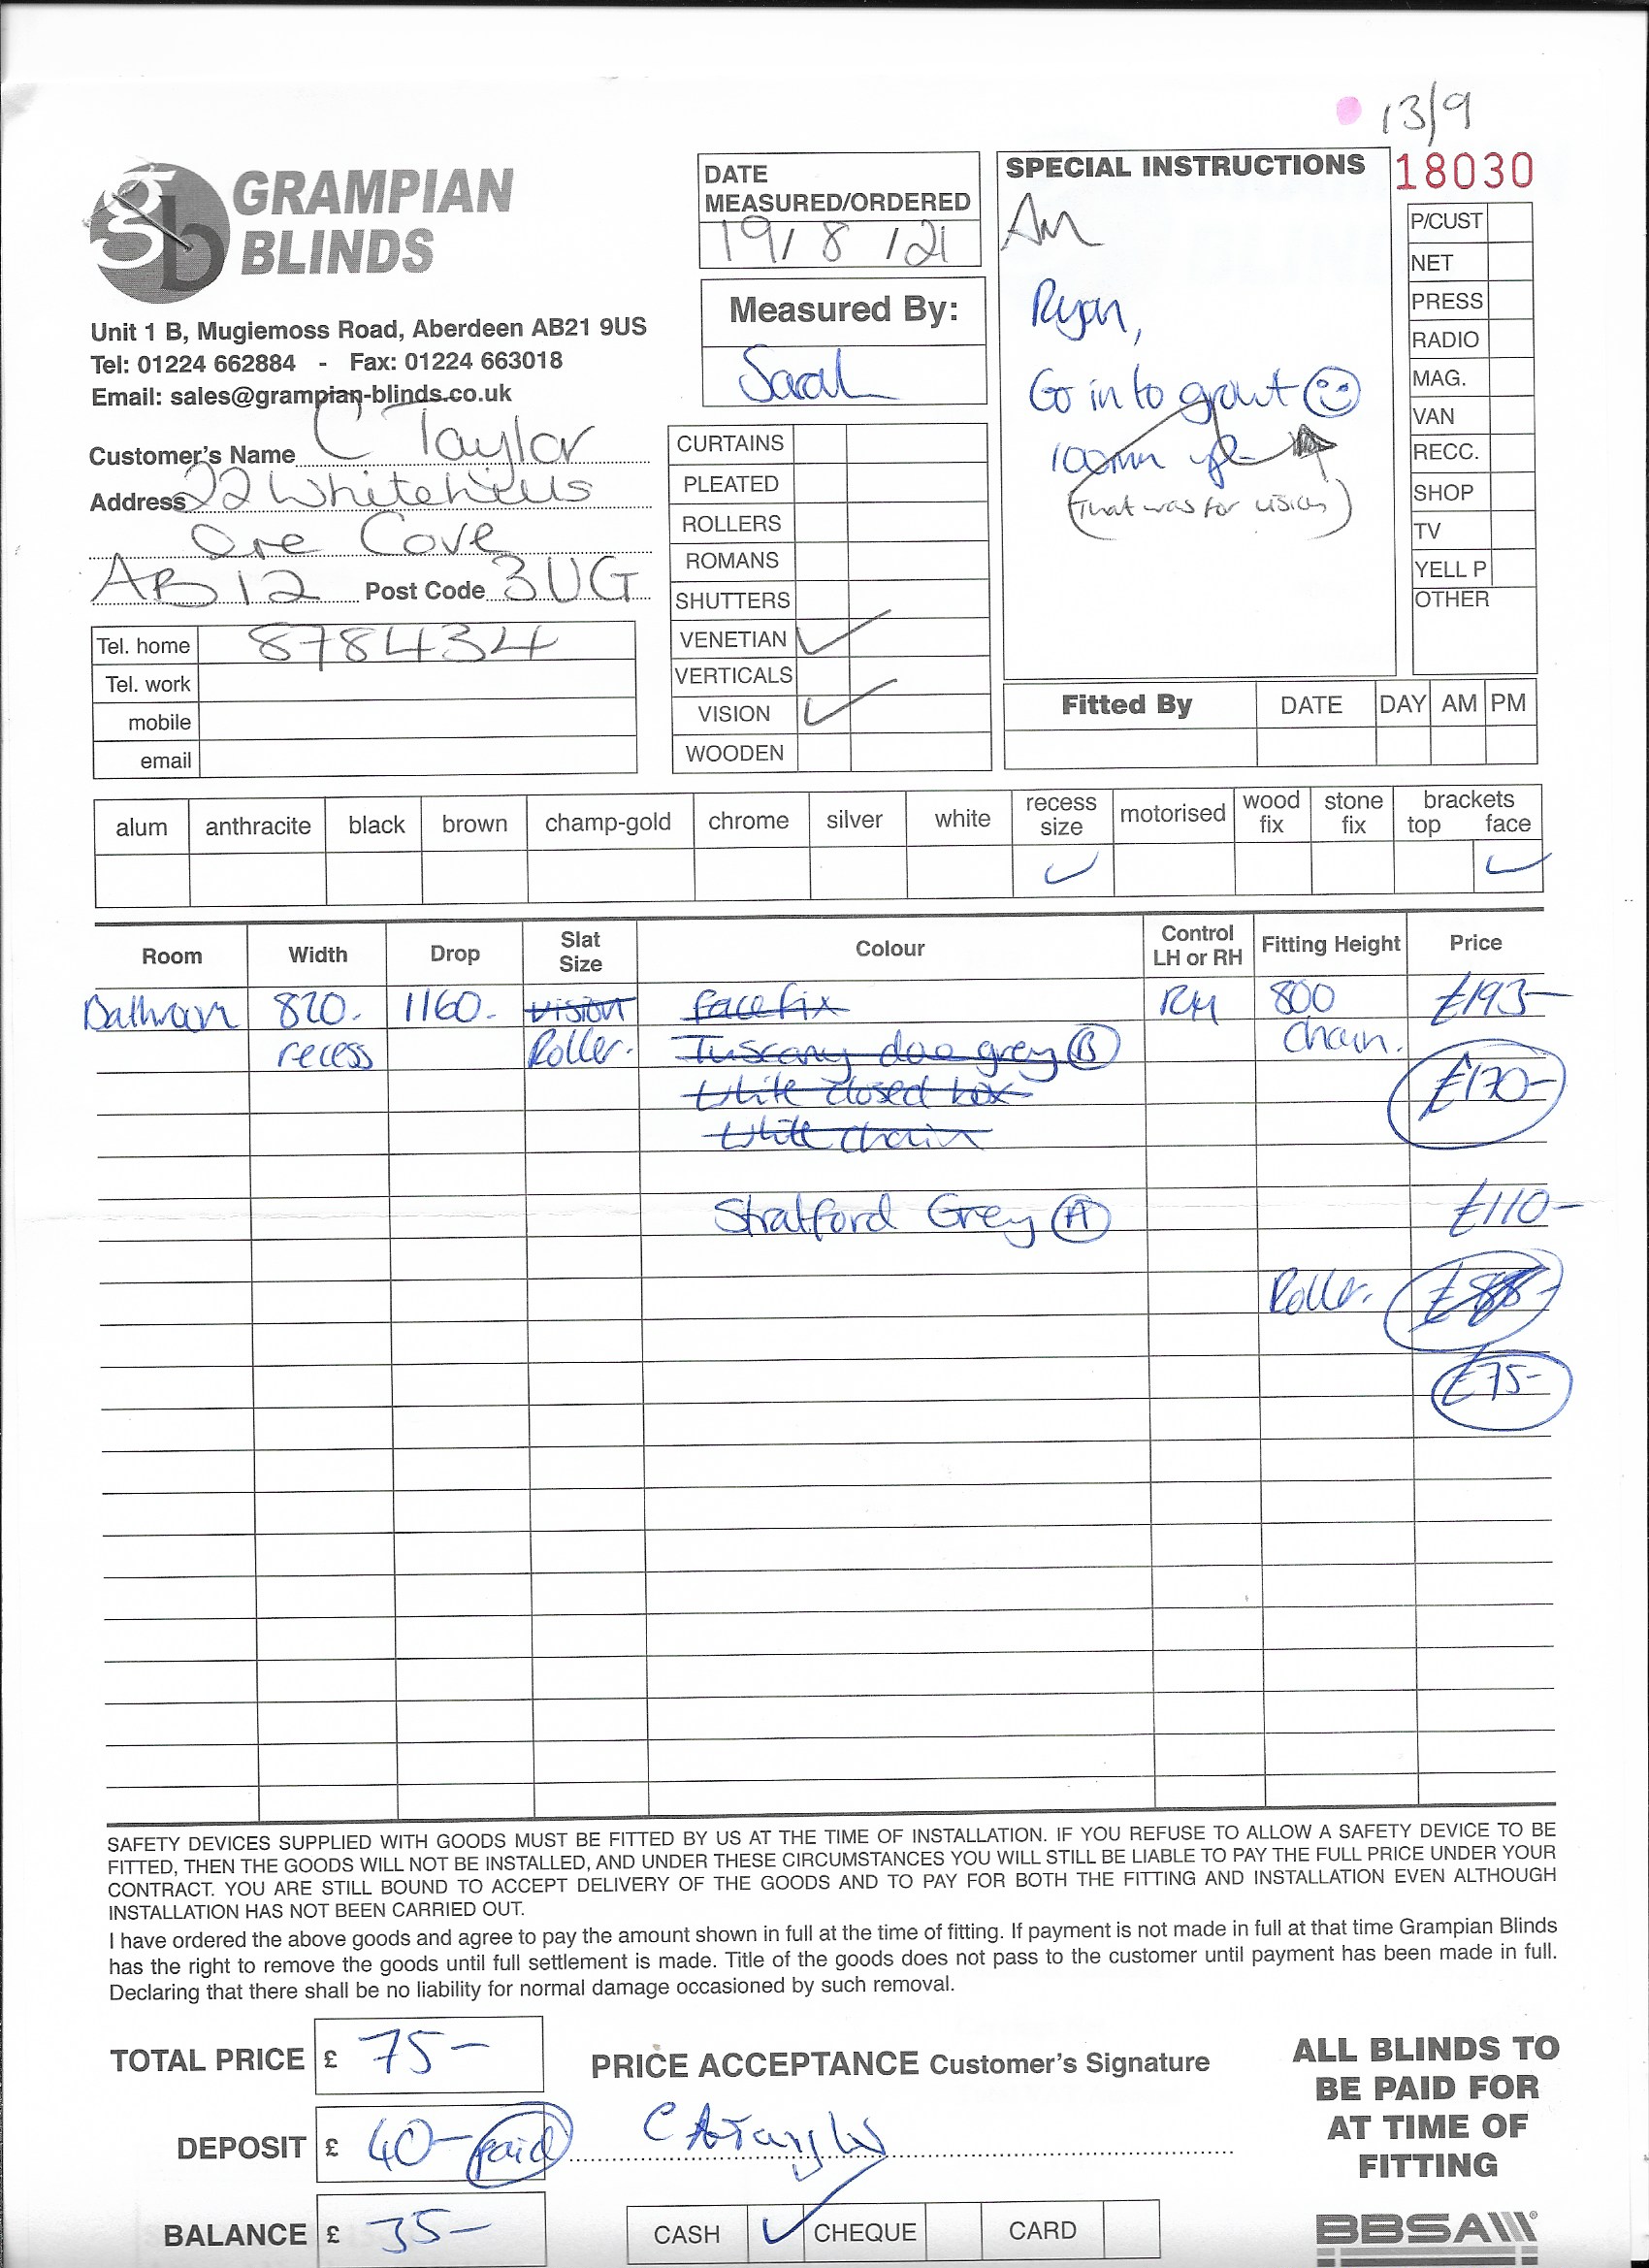 13/9
GRAMPIAN
BLINDS
Unit 1 B, Mugiemoss Road, Aberdeen AB21 9US
Tel: 01224 662884 - Fax: 01224 663018
Email: sales@grampian-blinds.co.uk
Customer's Name C Taylor
Address 22 Whitehills
Cove
AB12 Post Code 3UG
Tel. home 8784324
Tel. work
mobile
email
DATE
MEASURED/ORDERED
19/8/21
Measured By:
Sarah
CURTAINS
PLEATED
ROLLERS
ROMANS
SHUTTERS
VENETIAN ✓
VERTICALS
VISION ✓
WOODEN
SPECIAL INSTRUCTIONS
AM
Ryan,
Go in to grout
100mm
(That was for vision)
18030
P/CUST
NET
PRESS
RADIO
MAG.
VAN
RECC.
SHOP
TV
YELL P
OTHER
Fitted By DATE DAY AM PM
alum anthracite black brown champ-gold chrome silver white recess size motorised wood fix stone fix brackets top face
✓ ✓
Room Width Drop Slat Size Colour Control LH or RH Fitting Height Price
Bathroom 820. 1160. vision face fix RH 800 £193-
recess Roller. Tuscany grey B chain.
White closed box £170-
White chain
Stratford Grey A £110-
Roller. £88-
£75-
SAFETY DEVICES SUPPLIED WITH GOODS MUST BE FITTED BY US AT THE TIME OF INSTALLATION. IF YOU REFUSE TO ALLOW A SAFETY DEVICE TO BE
FITTED, THEN THE GOODS WILL NOT BE INSTALLED, AND UNDER THESE CIRCUMSTANCES YOU WILL STILL BE LIABLE TO PAY THE FULL PRICE UNDER YOUR
CONTRACT. YOU ARE STILL BOUND TO ACCEPT DELIVERY OF THE GOODS AND TO PAY FOR BOTH THE FITTING AND INSTALLATION EVEN ALTHOUGH
INSTALLATION HAS NOT BEEN CARRIED OUT.
I have ordered the above goods and agree to pay the amount shown in full at the time of fitting. If payment is not made in full at that time Grampian Blinds
has the right to remove the goods until full settlement is made. Title of the goods does not pass to the customer until payment has been made in full.
Declaring that there shall be no liability for normal damage occasioned by such removal.
TOTAL PRICE £ 75-
DEPOSIT £ 40- paid
BALANCE £ 35-
PRICE ACCEPTANCE Customer's Signature
C A Taylor
CASH ✓ CHEQUE CARD
ALL BLINDS TO
BE PAID FOR
AT TIME OF
FITTING
BBSA